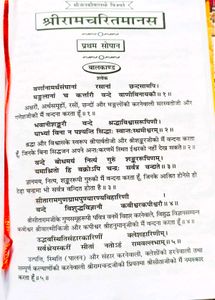 श्रीजानकीवल्लभो विजयते
श्रीरामचरितमानस
प्रथम सोपान
बालकाण्ड
श्लोक
वर्णानामर्थसंघानां रसानां छन्दसामपि।
मङ्गलानां च कर्त्तारौ वन्दे वाणीविनायकौ॥१॥
अक्षरों, अर्थसमूहों, रसों, छन्दों और मङ्गलोंकी करनेवाली सरस्वतीजी और
गणेशजीकी मैं वन्दना करता हूँ॥१॥
भवानीशङ्करौ वन्दे श्रद्धाविश्वासरूपिणौ।
याभ्यां विना न पश्यन्ति सिद्धाः स्वान्तःस्थमीश्वरम्॥२॥
श्रद्धा और विश्वासके स्वरूप श्रीपार्वतीजी और श्रीशङ्करजीकी मैं वन्दना करता
हूँ, जिनके बिना सिद्धजन अपने अन्तःकरणमें स्थित ईश्वरको नहीं देख सकते॥२॥
वन्दे बोधमयं नित्यं गुरुं शङ्कररूपिणम्।
यमाश्रितो हि वक्रोऽपि चन्द्रः सर्वत्र वन्द्यते॥३॥
ज्ञानमय, नित्य, शङ्कररूपी गुरुकी मैं वन्दना करता हूँ, जिनके आश्रित होनेसे ही
टेढ़ा चन्द्रमा भी सर्वत्र वन्दित होता है॥३॥
सीतारामगुणग्रामपुण्यारण्यविहारिणौ।
वन्दे विशुद्धविज्ञानौ कवीश्वरकपीश्वरौ॥४॥
श्रीसीतारामजीके गुणसमूहरूपी पवित्र वनमें विहार करनेवाले, विशुद्ध विज्ञानसम्पन्न
कवीश्वर श्रीवाल्मीकिजी और कपीश्वर श्रीहनुमान्‌जीकी मैं वन्दना करता हूँ॥४॥
उद्भवस्थितिसंहारकारिणीं क्लेशहारिणीम्।
सर्वश्रेयस्करीं सीतां नतोऽहं रामवल्लभाम्॥५॥
उत्पत्ति, स्थिति (पालन) और संहार करनेवाली, क्लेशोंकी हरनेवाली तथा
सम्पूर्ण कल्याणोंकी करनेवाली श्रीरामचन्द्रजीकी प्रियतमा श्रीसीताजीको मैं नमस्कार
करता हूँ॥५॥